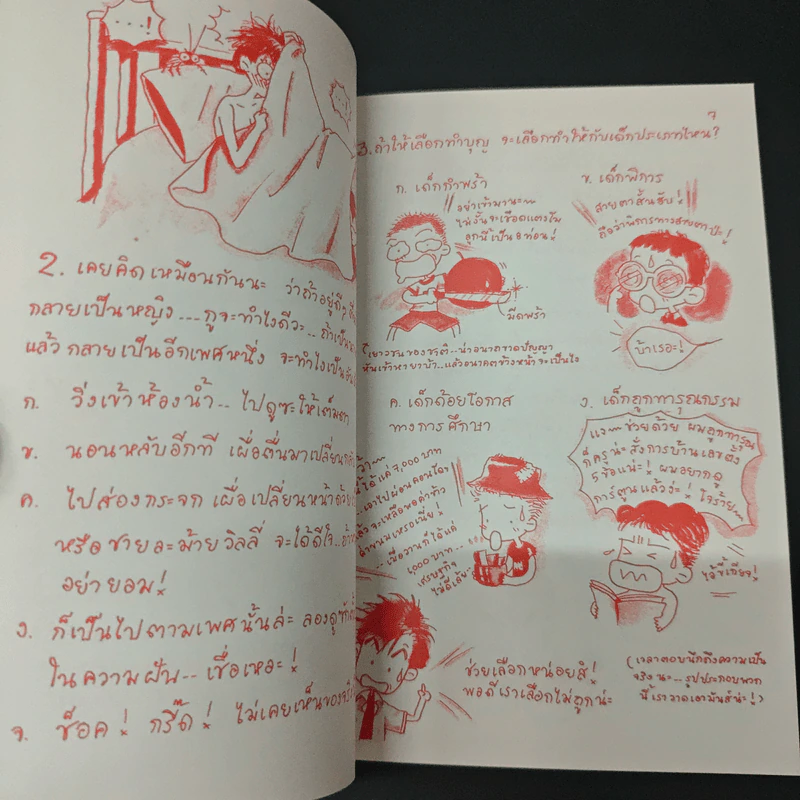 ...!
2. เคยคิดเหมือนกันนะ ว่าถ้าอยู่ดีๆ
กลายเป็นหญิง... กูจะทำไงดีวะ... ถ้าเป็น
แล้วกลายเป็นอีกเพศหนึ่ง จะทำไงเป็นอัน
ก. วิ่งเข้าห้องน้ำ.. ไปดูซะให้เต็มตา
ข. นอนหลับอีกที เผื่อตื่นมาเปลี่ยน
ค. ไปส่องกระจก เผื่อเปลี่ยนหน้าด้วย
หรือชายละม้ายวิลลี่ จะได้ดีใจ..
อย่ายอม!
ง. ก็เป็นไปตามเพศนั้นล่ะ ลองดู
ในความฝัน... เชื่อเหอะ!
จ. ช็อค! กรี๊ด! ไม่เคยเห็นของจริง
7
3. ถ้าให้เลือกทำบุญ จะเลือกทำให้กับเด็กประเภทไหน?
ก. เด็กกำพร้า
อย่าเข้ามานะ
ไม่งั้นจะเชือดแตงโม
ลูกนี้เป็น 8 ท่อน!
มีดพร้า
เยาวชนของชาติ..น่าอนาถขาดปัญญา
หันเข้าหายาบ้า..แล้วอนาคตข้างหน้าจะเป็นไง
ข. เด็กพิการ
สายตาสั้นฮับ!
ถือว่าพิการทางสายตาป่ะ!
บ้าเรอะ!
ค. เด็กด้อยโอกาส
ทางการศึกษา
ได้แค่ 7,000 บาท
เอาไปผ่อนคอนโด
แล้วจะเหลือพอค่าข้าว
ค่าขนมเหรอเนี่ย!
เมื่อวานก็ได้แค่
1,000 บาท...
เศรษฐกิจ
ไม่ดีเลย
ง. เด็กถูกทารุณกรรม
แง~ ช่วยด้วย ผมถูกทารุณ
ก็ครูน่ะ สั่งการบ้านเลขตั้ง
5 ข้อแน่ะ! ผมอยากดู
การ์ตูนแล้วง่ะ! ใจร้าย
ไอ้ขี้เกียจ!
ช่วยเลือกหน่อยสิ!
พอดีเราเลือกไม่ถูกน่ะ
(เวลาตอบนึกถึงความเป็น
จริงนะ... รูปประกอบพวก
นี้เราวาดเอามันส์น่ะ!)